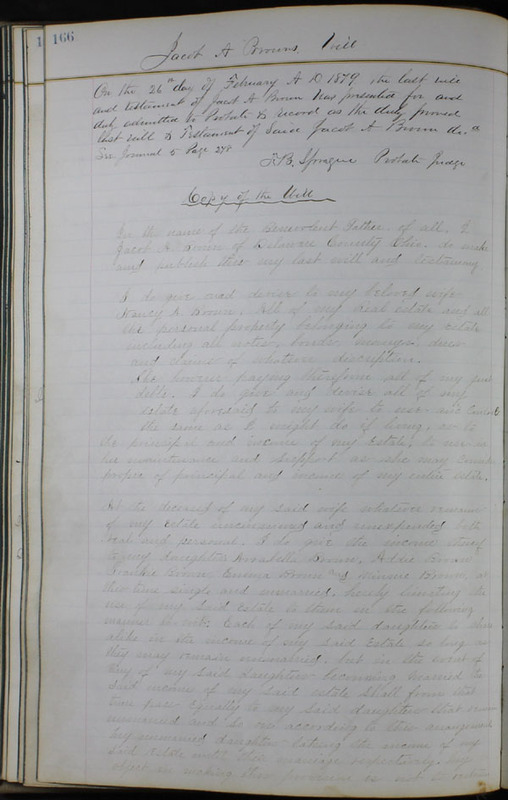 1 166
Jacob A Browns Will
On the 26th day of February A D 1879 the last will
and testament of Jacob A Brown was presented for and
duly admitted to Probate & record as the duly proved
last will & Testament of Said Jacob A Brown decd
See Journal 5 Page 278
F.B. Sprague Probate Judge
Copy of the Will
In the name of the Benevolent Father of all, I
Jacob A. Brown of Delaware County Ohio. do make
and publish this my last will and testament
I do give and devise to my beloved wife
Nancy Brown, All of my real estate and all
the personal property belonging to my estate
including all notes, bonds, moneys, dues
and claims of whatever description.
She however paying therefrom all of my just
debts. I do give and devise all of my
estate aforesaid to my wife to use and
the same as I might do if living, or to
the principal and income of my Estate, to use as
her maintenance and support as she may consider
proper of principal and income of my entire estate.
At the decease of my said wife whatever remains
of my Estate unconsumed and unexpended both
real and personal. I do give the income
to my daughters Arabella Brown, Addie Brown
Frankie Brown Emma Brown and Minnie Brown at
this time single and unmarried, hereby limiting the
use of my said estate to them in the following
manner to wit: Each of my said daughters to share
alike in the income of my said Estate so long as
they may remain unmarried. but in the event of
any of my said daughters becoming married the
said income of my said estate shall from that
time pass equally to my said daughters that remain
unmarried and so on according to this arrangement
my unmarried daughters taking the income of my
said Estate until their marriage respectively. my
object in making this provision is not to